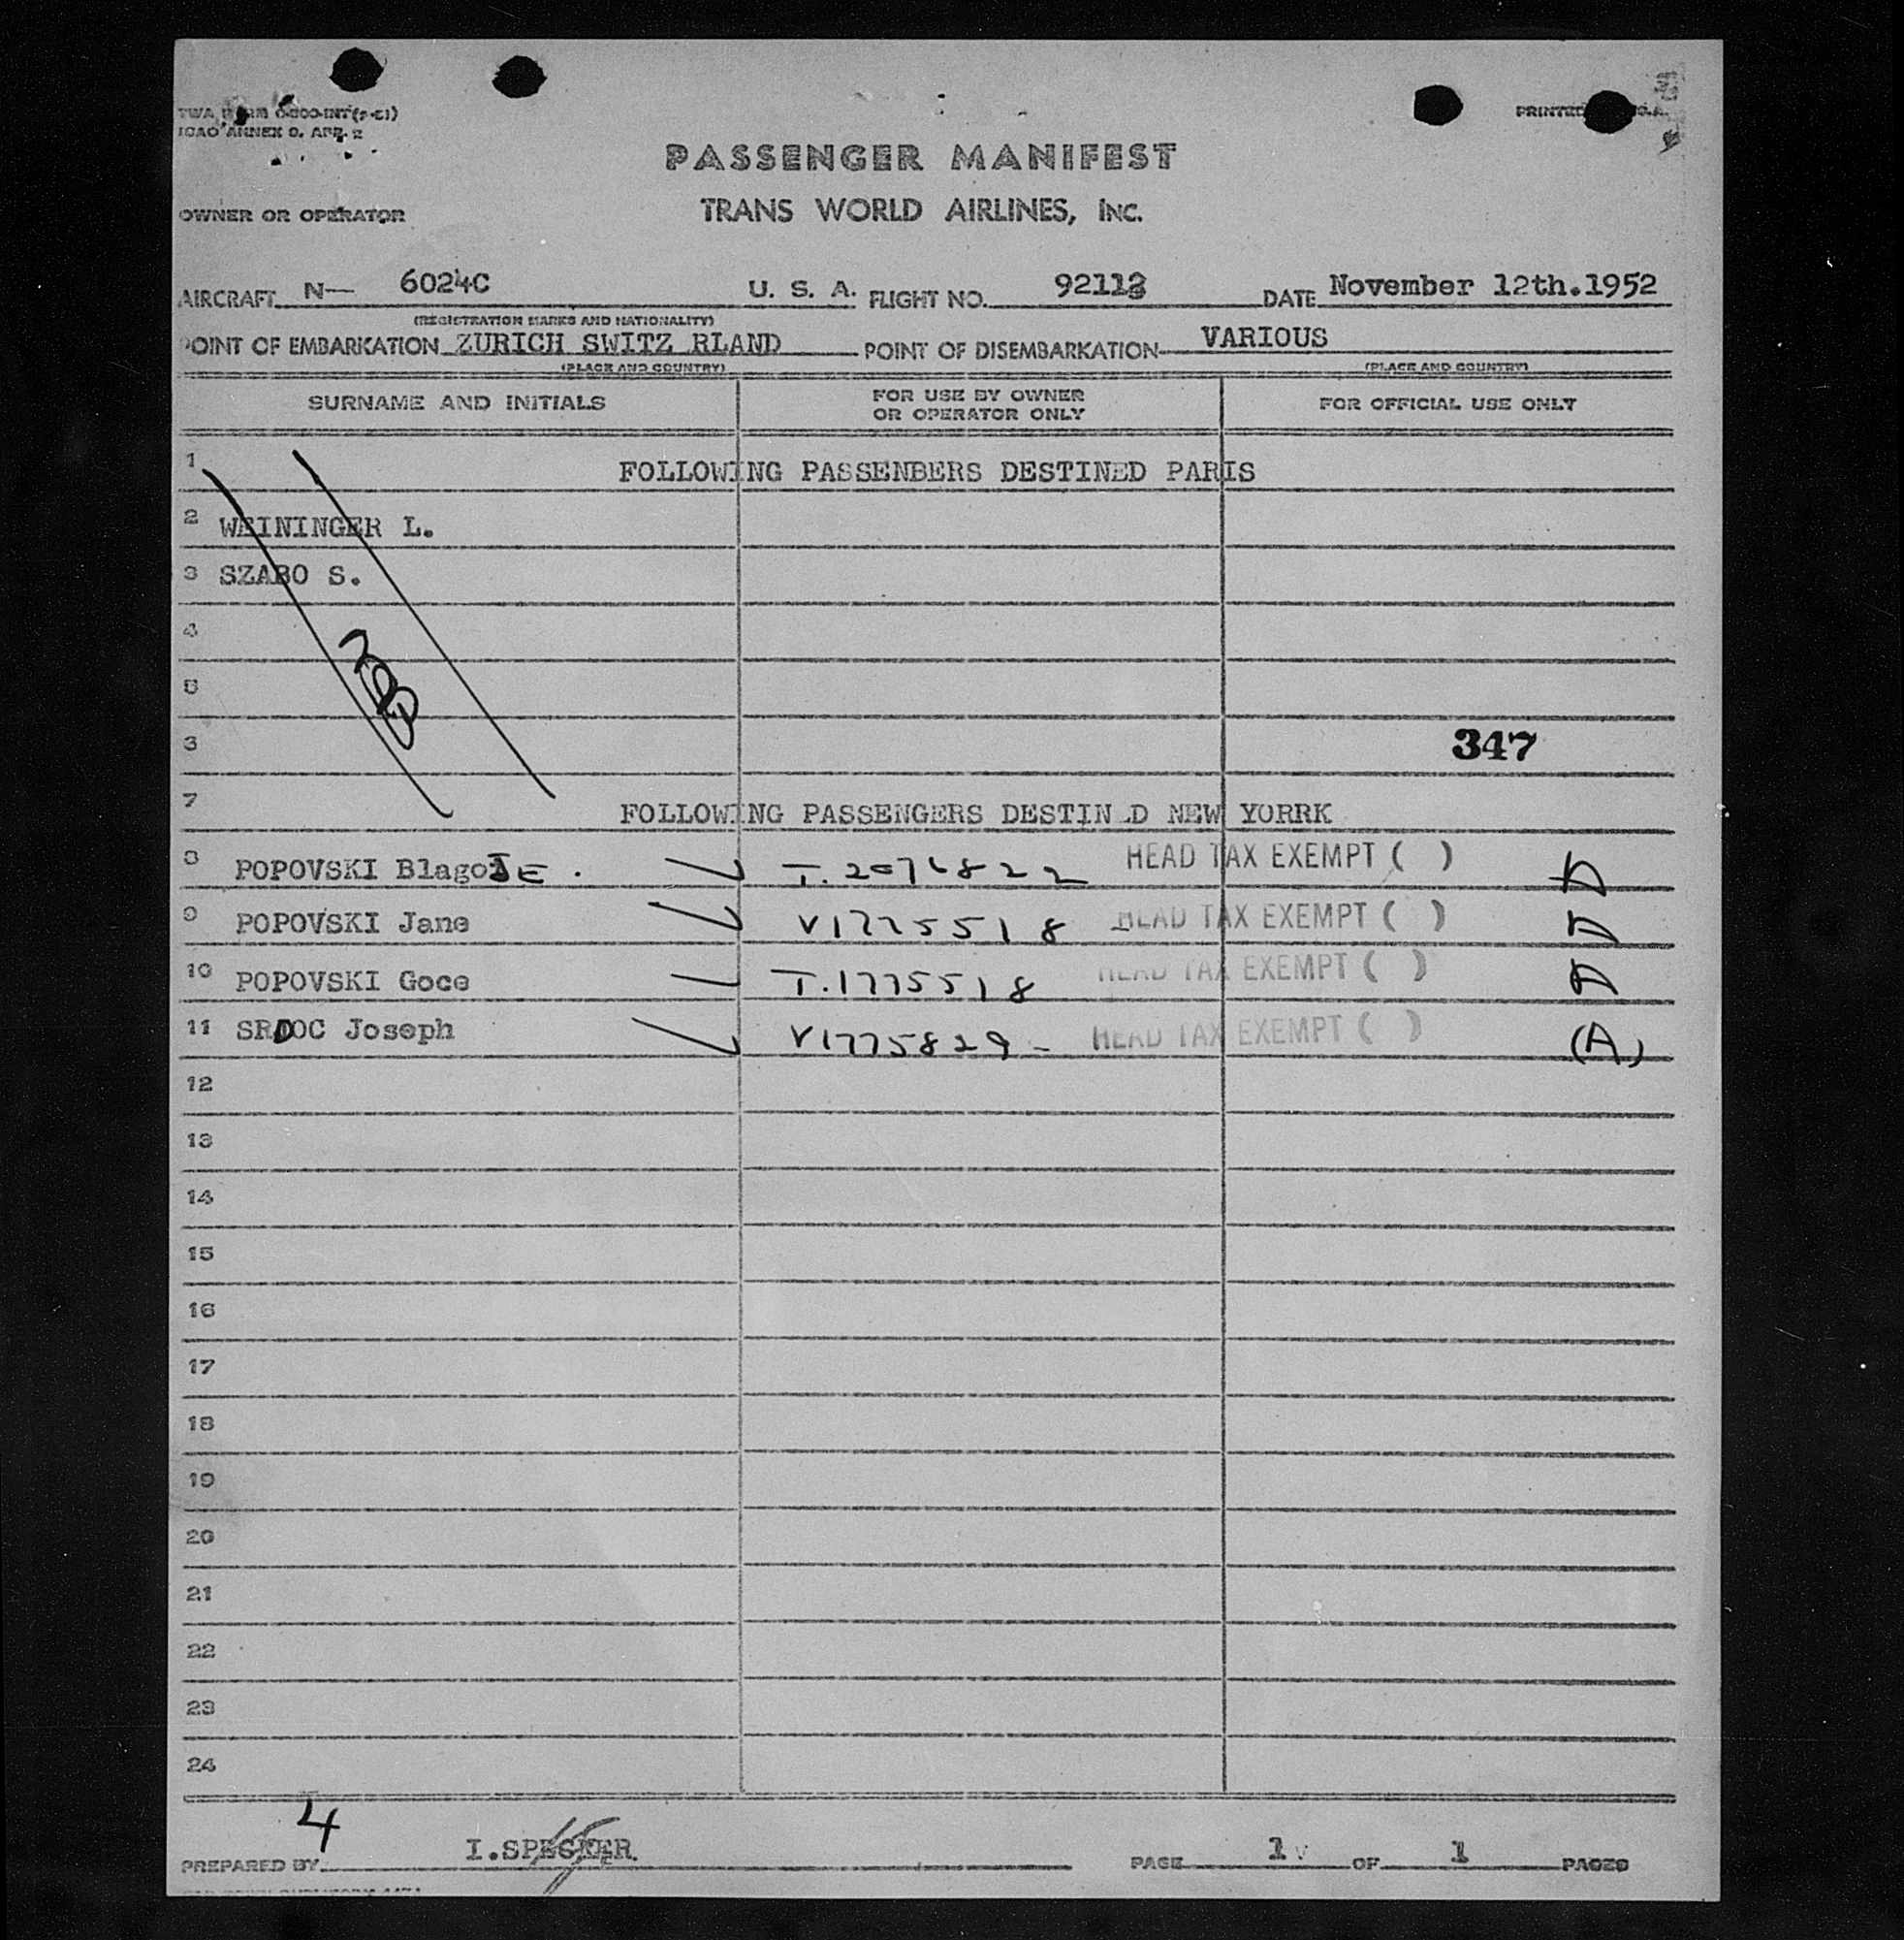 TWA FORM
ICAO ANNEX 9, APP. 2
PRINTED
PASSENGER MANIFEST
OWNER OR OPERATOR
TRANS WORLD AIRLINES, INC.
AIRCRAFT N— 6024C U. S. A. FLIGHT NO. 92113 DATE November 12th.1952
(REGISTRATION MARKS AND NATIONALITY)
POINT OF EMBARKATION ZURICH SWITZ RLAND POINT OF DISEMBARKATION VARIOUS
(PLACE AND COUNTRY) (PLACE AND COUNTRY)
SURNAME AND INITIALS FOR USE BY OWNER OR OPERATOR ONLY FOR OFFICIAL USE ONLY
1 FOLLOWING PASSENBERS DESTINED PARIS
2 WEININGER L.
3 SZABO S.
4
5
6 347
7 FOLLOWING PASSENGERS DESTIN D NEW YORRK
8 POPOVSKI BlagoJE . T.2076822 HEAD TAX EXEMPT ( ) A
9 POPOVSKI Jane V1775518 HEAD TAX EXEMPT ( ) A
10 POPOVSKI Goce T.1775518 HEAD TAX EXEMPT ( ) A
11 SRDOC Joseph V1775829 - HEAD TAX EXEMPT ( ) (A)
12
13
14
15
16
17
18
19
20
21
22
23
24
4
PREPARED BY I.SPEGNER. PAGE 1 OF 1 PAGES